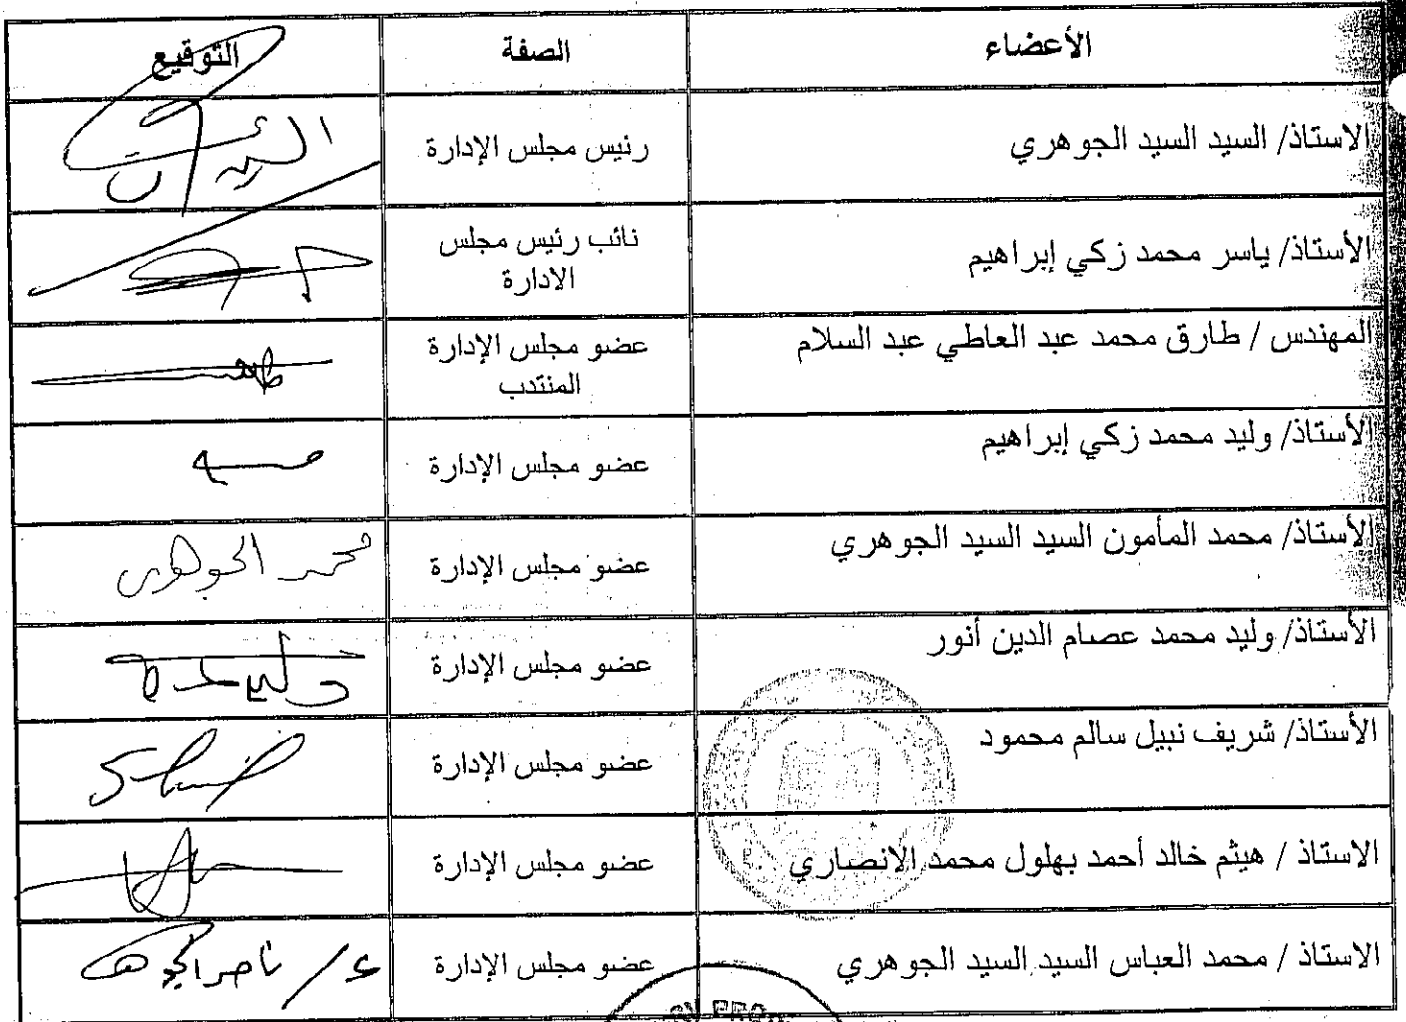 الأعضاء الصفة التوقيع
الاستاذ/ السيد السيد الجوهري رئيس مجلس الإدارة
الأستاذ/ ياسر محمد زكي إبراهيم نائب رئيس مجلس
الادارة
المهندس / طارق محمد عبد العاطي عبد السلام عضو مجلس الإدارة
المنتدب
الأستاذ/ وليد محمد زكي إبراهيم عضو مجلس الإدارة
الأستاذ/ محمد المأمون السيد السيد الجوهري عضو مجلس الإدارة محمد الجوهري
الأستاذ/ وليد محمد عصام الدين أنور عضو مجلس الإدارة
الأستاذ/ شريف نبيل سالم محمود عضو مجلس الإدارة
الاستاذ / هيثم خالد أحمد بهلول محمد الانصاري عضو مجلس الإدارة
الاستاذ / محمد العباس السيد السيد الجوهري عضو مجلس الإدارة